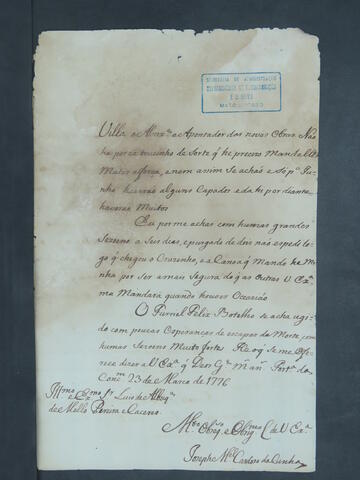 SECRETARIA DE ADMINISTRAÇÃO
MATO GROSSO
Villa e Apontador das novas Obras Não
ha porca toucinho de Sorte q he preciso Mandalos
Matar a força, e nem assim se achão e Só pª Ju-
nho haverão alguns Capados e dahi por diante
haverão Muitos
Eu por me achar com humas grandes
Sezoens a Seis dias, e purgado de dois não espedi lo-
go q chegou o Cruzenho, e a Canoa q Mando he Mi-
nha por ser a mais Segura do q as outras V. Exª
ma Mandará quando houver Occazião
O Furriel Felix Botelho se acha ungi-
do com poucas Esperanças de escapar da Morte, com
humas Sezoens Muito fortes He o q se me offe-
rece dizer a V. Exª q Deos Gᵉ mˢ anˢ Fortᵃ da
Concᵐ 23 de Março de 1776
Illmo e Exmo Sr Luis de Albuqᵉ
de Mello Pereira e Caceres
De V. Exª
Joseph Mᵉˡ Cardozo da Cunha